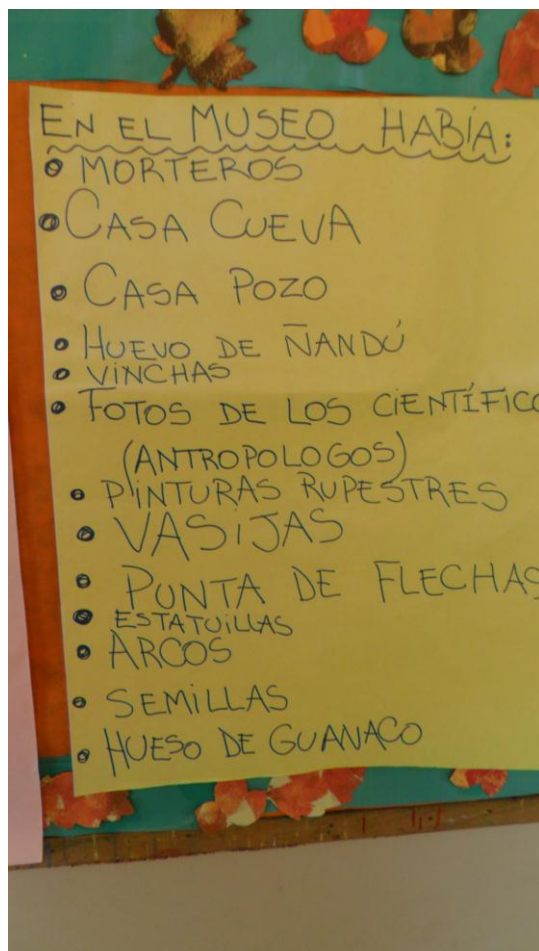 EN EL MUSEO HABÍA:
• MORTEROS
• CASA CUEVA
• CASA POZO
• HUEVO DE ÑANDÚ
• VINCHAS
• FOTOS DE LOS CIENTÍFICO
(ANTROPOLOGOS)
• PINTURAS RUPESTRES
• VASIJAS
• PUNTA DE FLECHAS
• ESTATUILLAS
• ARCOS
• SEMILLAS
• HUESO DE GUANACO